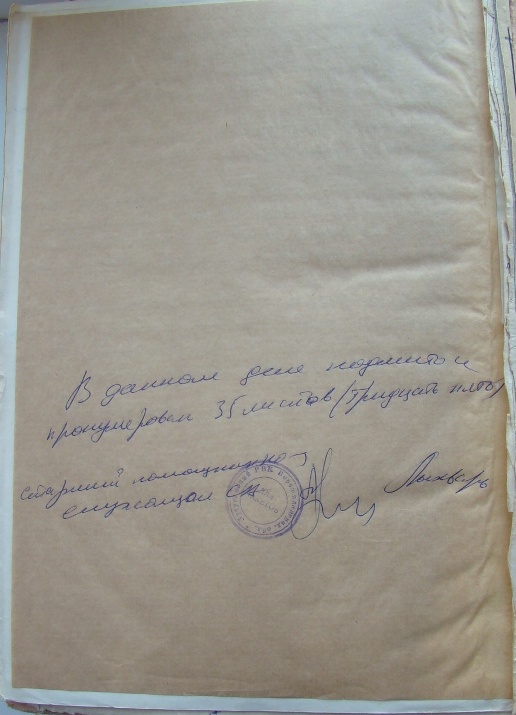 В данном деле подшито и
пронумерован 35 листов (тридцать пять)
старший помощник
служащая СА
Лыхварь